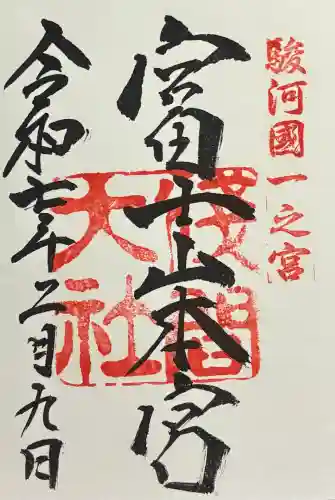 駿河國一之宮
富士山本宮
浅間大社
令和七年二月九日